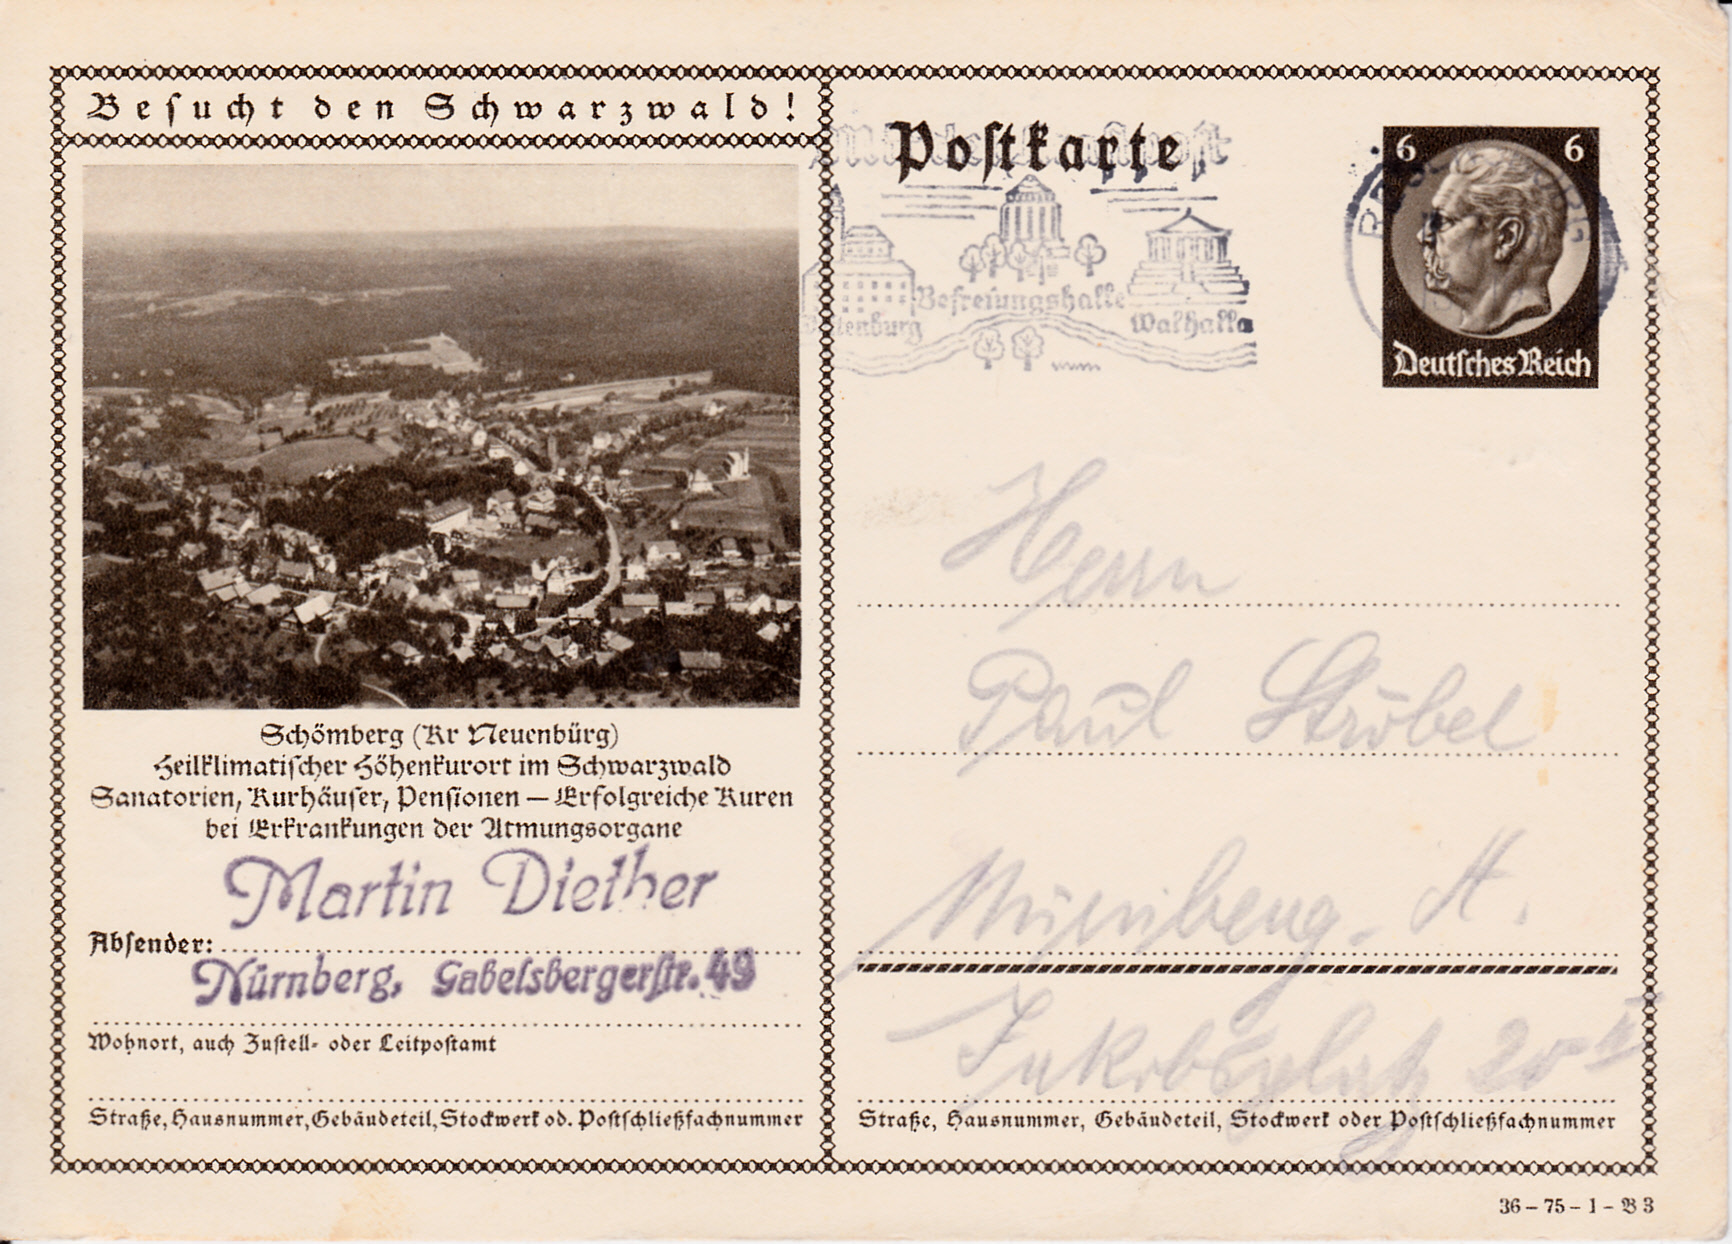 Besucht den Schwarzwald!
Schömberg (Kr Neuenbürg)
Heilklimatischer Höhenkurort im Schwarzwald
Sanatorien, Kurhäuser, Pensionen – Erfolgreiche Kuren
bei Erkrankungen der Atmungsorgane
Martin Diether
Absender:
Nürnberg, Gabelsbergerstr. 49
Wohnort, auch Zustell- oder Leitpostamt
Straße, Hausnummer, Gebäudeteil, Stockwerk od. Postschließfachnummer
Postkarte
Befreiungshalle
Walhalla
6 6
Deutsches Reich
Herrn
Paul Ströbel
Nürnberg. A.
Jakobsplatz 20 II
Straße, Hausnummer, Gebäudeteil, Stockwerk oder Postschließfachnummer
36 – 75 – 1 – B 3